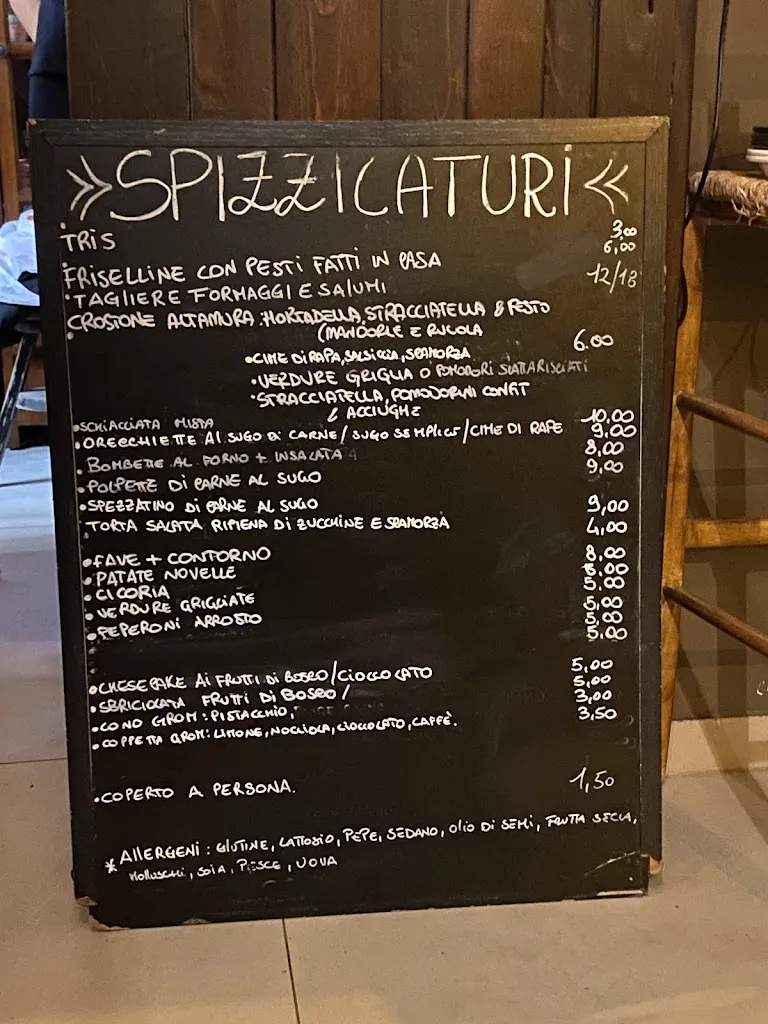 >> SPIZZICATURI <<
TRIS 3,00
FRISELLINE CON PESTI FATTI IN CASA 6,00
• TAGLIERE FORMAGGI E SALUMI 12/18
CROSTONE ALTAMURA: MORTADELLA, STRACCIATELLA & PESTO
(MANDORLE E RUCOLA
• CIME DI RAPA, SALSICCIA, SCAMORZA 6.00
• VERDURE GRIGLIA O POMODORI SCATTARISCIATI
• STRACCIATELLA, POMODORINI CONFIT
& ACCIUGHE
• SCHIACCIATA MISTA 10,00
• ORECCHIETTE AL SUGO DI CARNE/SUGO SEMPLICE/CIME DI RAPE 9,00
• BOMBETTE AL FORNO + INSALATA 8,00
• POLPETTE DI CARNE AL SUGO 9,00
• SPEZZATINO DI CARNE AL SUGO 9,00
TORTA SALATA RIPIENA DI ZUCCHINE E SCAMORZA 4,00
• FAVE + CONTORNO 8,00
• PATATE NOVELLE 5.00
• CICORIA 5.00
• VERDURE GRIGLIATE 5,00
• PEPERONI ARROSTO 5,00
5,00
• CHESECAKE AI FRUTTI DI BOSCO/CIOCCOLATO 5,00
• SBRICIOLATA FRUTTI DI BOSCO/ 5,00
• CONO GROM: PISTACCHIO, 3,00
• COPPETTA GROM: LIMONE, NOCCIOLA, CIOCCOLATO, CAFFÈ. 3,50
• COPERTO A PERSONA. 1,50
* ALLERGENI: GLUTINE, LATTOSIO, PEPE, SEDANO, OLIO DI SEMI, FRUTTA SECCA,
MOLLUSCHI, SOIA, PESCE, UOVA